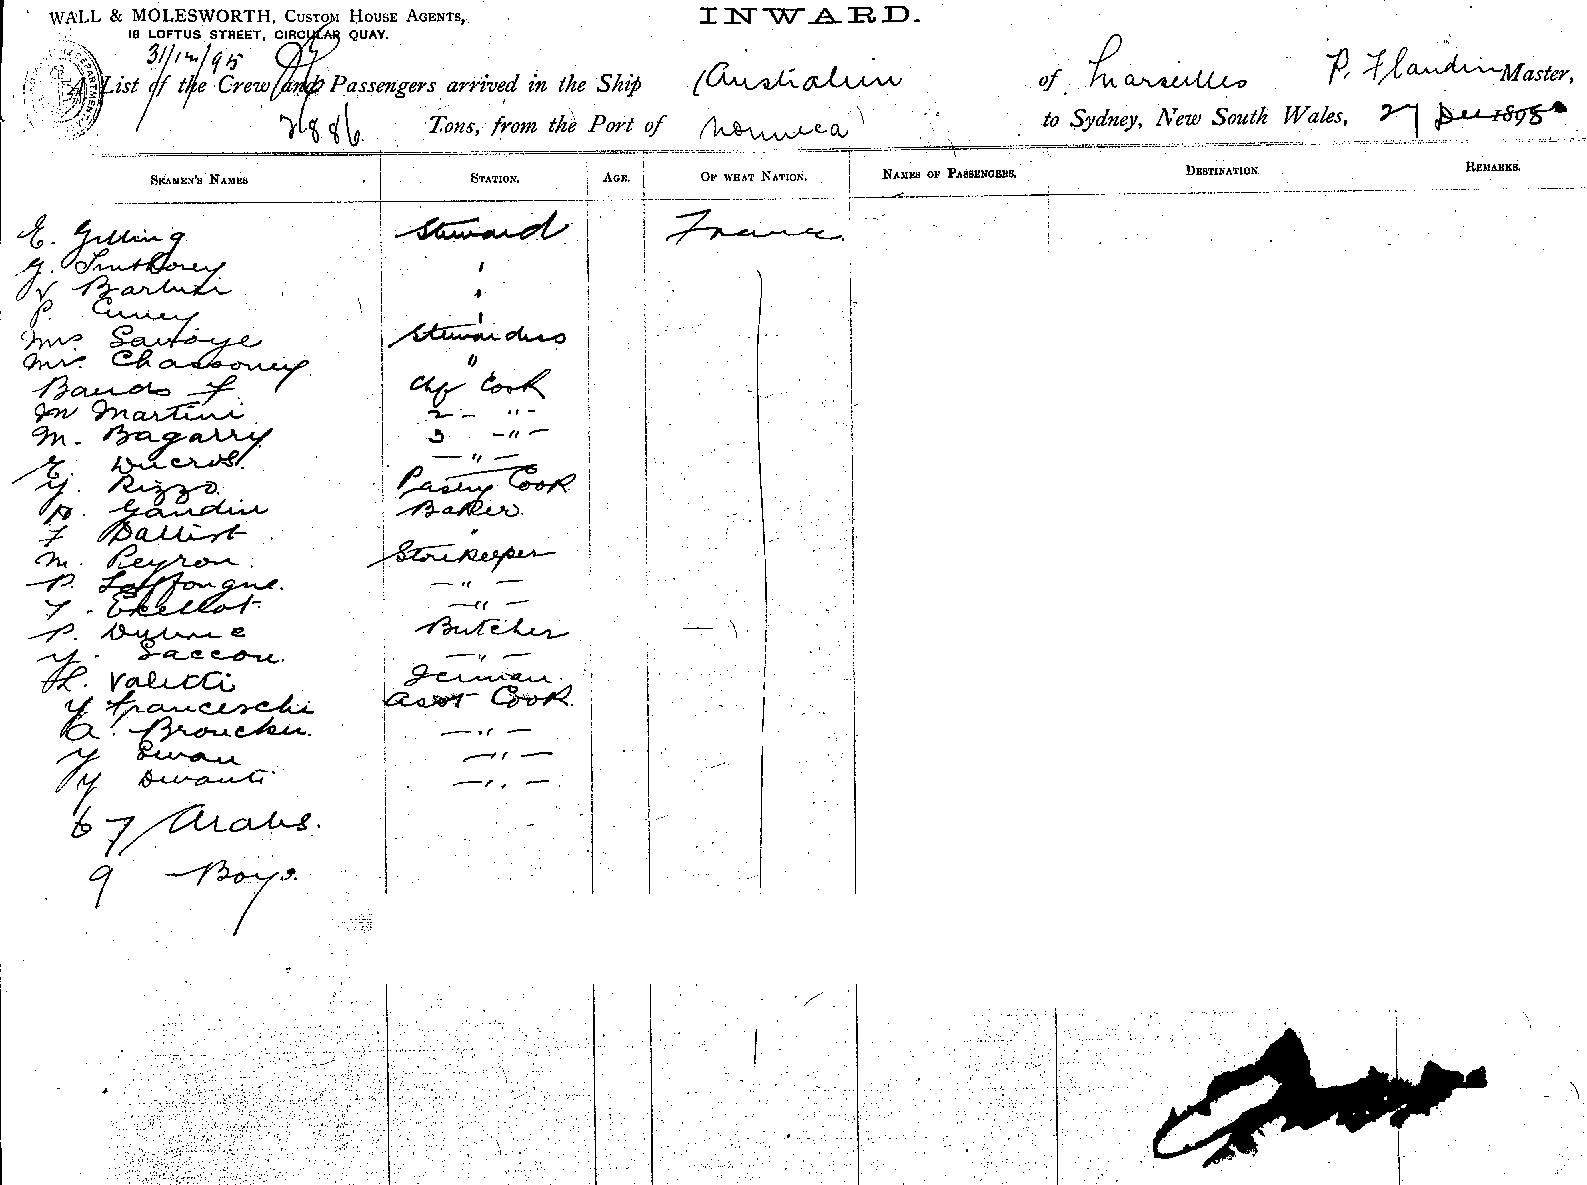 WALL & MOLESWORTH, CUSTOM HOUSE AGENTS,
18 LOFTUS STREET, CIRCULAR QUAY.
INWARD.
31/12/95
A List of the Crew and Passengers arrived in the Ship Australien of Marseilles P. Flandin Master,
2886 Tons, from the Port of Noumea to Sydney, New South Wales, 27 Dec 1895
SEAMEN'S NAMES STATION. AGE. OF WHAT NATION. NAMES OF PASSENGERS. DESTINATION. REMARKS.
E. Steward France
G.
V Barbieri
P.
Mrs Savoye Stewardess
Mrs. Chassoney "
Bauds F Chf Cook
M Martini 2 - " -
M. Bagarry 3 - " -
E. Ducros. - " -
Y. Rizzo Pastry Cook
P. Gaudin Baker
F Ballist "
M. Peyron Storekeeper
P. Laffongue. - " -
F. - " -
P. Butcher
Y. Saccou. - " -
H. Valetti
Y Franceschi Asst Cook
A. - " -
Y - " -
Y - " -
67 Arabs.
9 Boys.